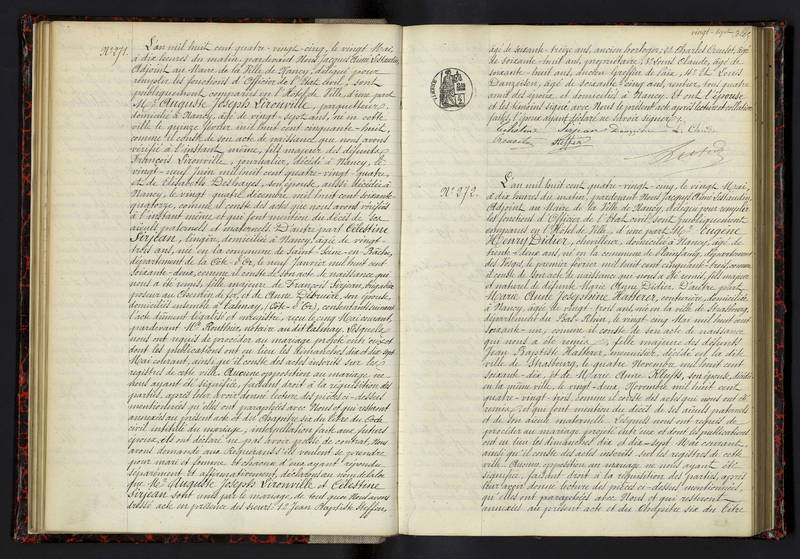 N° 271.
L'an mil huit cent quatre-vingt-cinq, le vingt Mai,
à dix heures du matin, pardevant Nous, Jacques Aimé
Adjoint au Maire de la Ville de Nancy, délégué pour
remplir les fonctions d'Officier de l'Etat civil, sont
publiquement comparus en l'Hôtel de Ville, d'une part
Mr. Auguste Joseph Lironville, parqueteur,
domicilié à Nancy, âgé de vingt-sept ans, né en cette
ville le quinze février mil huit cent cinquante-huit,
comme il conste de son acte de naissance que nous avons
vérifié à l'instant même, fils majeur des défunts
François Lironville, journalier, décédé à Nancy, le
vingt-neuf Juin mil huit cent quatre-vingt-quatre,
et de Elisabeth Deshayes, son épouse, aussi décédée à
Nancy, le vingt quatre décembre mil huit cent soixante-
quatorze, comme il conste des actes que nous avons vérifiés
à l'instant même et qui font mention du décès de ses
aïeuls paternels et maternels. D'autre part Célestine
Sirjean, lingère, domiciliée à Nancy, âgée de vingt-
trois ans, née en la commune de Saint-Seine-en-Bâche,
département de la Côte d'Or, le neuf Janvier mil huit cent
soixante-deux, comme il conste de son acte de naissance qui
nous a été remis, fille majeure de François Sirjean, brigadier
poseur au Chemin de fer, et de Anne Debruère, son épouse,
domiciliés ensemble à (Côte d'Or), consentants suivant
l'acte dûment légalisé et enregistré, reçu le cinq Mai courant,
pardevant Me. notaire au dit Lesquels
nous ont requis de procéder au mariage projeté entr'eux et
dont les publications ont eu lieu les dimanches dix et dix-sept
Mai courant, ainsi qu'il conste des actes inscrits sur les
registres de cette ville. Aucune opposition au mariage ne
nous ayant été signifiée, faisant droit à la réquisition des
parties, après leur avoir donné lecture des pièces ci-dessus
mentionnées qu'elles ont paraphées avec Nous et qui resteront
annexées au présent acte et du Chapitre six du titre du Code
civil intitulé du mariage, interpellation faite aux futurs
époux, ils ont déclaré ne pas avoir passé de contrat, Nous
avons demandé aux Requérants s'ils veulent se prendre
pour mari et femme et chacun d'eux ayant répondu
séparément et affirmativement, déclarons au nom de la loi
que Mr. Auguste Joseph Lironville et Célestine
Sirjean sont unis par le mariage, de tout quoi Nous avons
dressé acte en présence des sieurs: 1° Jean Baptiste Steffin,
vingt-sept
âgé de soixante-treize ans, ancien horloger; 2° Charles âgé
de soixante-huit ans, propriétaire; 3° Louis Claude, âgé de
soixante-huit ans, ancien Greffier de Paix, 4° et Louis
Danzeisen, âgé de soixante-cinq ans, rentier, tous quatre
amis des époux et domiciliés à Nancy. Et ont l'épouse
et les témoins signé avec Nous le présent acte après lecture et collation
faites, l'époux ayant déclaré ne savoir signer.
Célestine Sirjean L. Claude
Steffin
N° 272.
L'an mil huit cent quatre-vingt-cinq, le vingt Mai,
à dix heures du matin, pardevant Nous Jacques Aimé
Adjoint au Maire de la Ville de Nancy, délégué pour remplir
les fonctions d'Officier de l'Etat civil, sont publiquement
comparus en l'Hôtel de Ville, d'une part Mr. Eugène
Henry Didier, chauffeur, domicilié à Nancy, âgé de
trente-deux ans, né en la commune de Plainfaing, département
des Vosges, le premier février mil huit cent cinquante-trois, comme
il conste de son acte de naissance qui nous a été remis, fils majeur
et naturel de défunte Marie Anne Didier. D'autre part
Marie Anne Joséphine Hatterer, couturière, domiciliée
à Nancy, âgée de vingt-trois ans, née en la ville de Strasbourg,
département du Bas-Rhin, le vingt-cinq Mai mil huit cent
soixante-un, comme il conste de son acte de naissance
qui nous a été remis, fille majeure des défunts
Jean Baptiste Hatterer, menuisier, décédé en la dite
ville de Strasbourg, le quatre Novembre mil huit cent
soixante-dix, et de Marie Anne son épouse, décédée
en la même ville, le vingt-deux Novembre mil huit cent
quatre-vingt-trois, comme il conste des actes qui nous ont été
remis, et qui font mention du décès de ses aïeuls paternels
et de son aïeule maternelle. Lesquels nous ont requis de
procéder au mariage projeté entr'eux et dont les publications
ont eu lieu les dimanches dix et dix-sept Mai courant,
ainsi qu'il conste des actes inscrits sur les registres de cette
ville. Aucune opposition au mariage ne nous ayant été
signifiée, faisant droit à la réquisition des parties, après
leur avoir donné lecture des pièces ci-dessus mentionnées,
qu'elles ont paraphées avec Nous et qui resteront
annexées au présent acte et du Chapitre six du titre